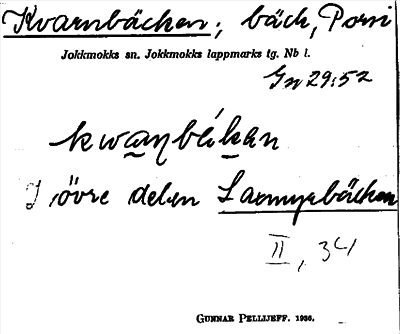 Kvarnbäcken; bäck, Porsi
Jokkmokks sn. Jokkmokks lappmarks tg. Nb l.
Gn 29:52
kwaŋbékən
I övre delen Laxmyrbäcken
II, 34
GUNNAR PELLIJEFF. 1936.